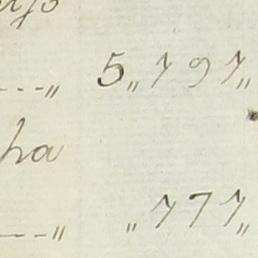 ---„ 5„797„
ha
---„ „777„